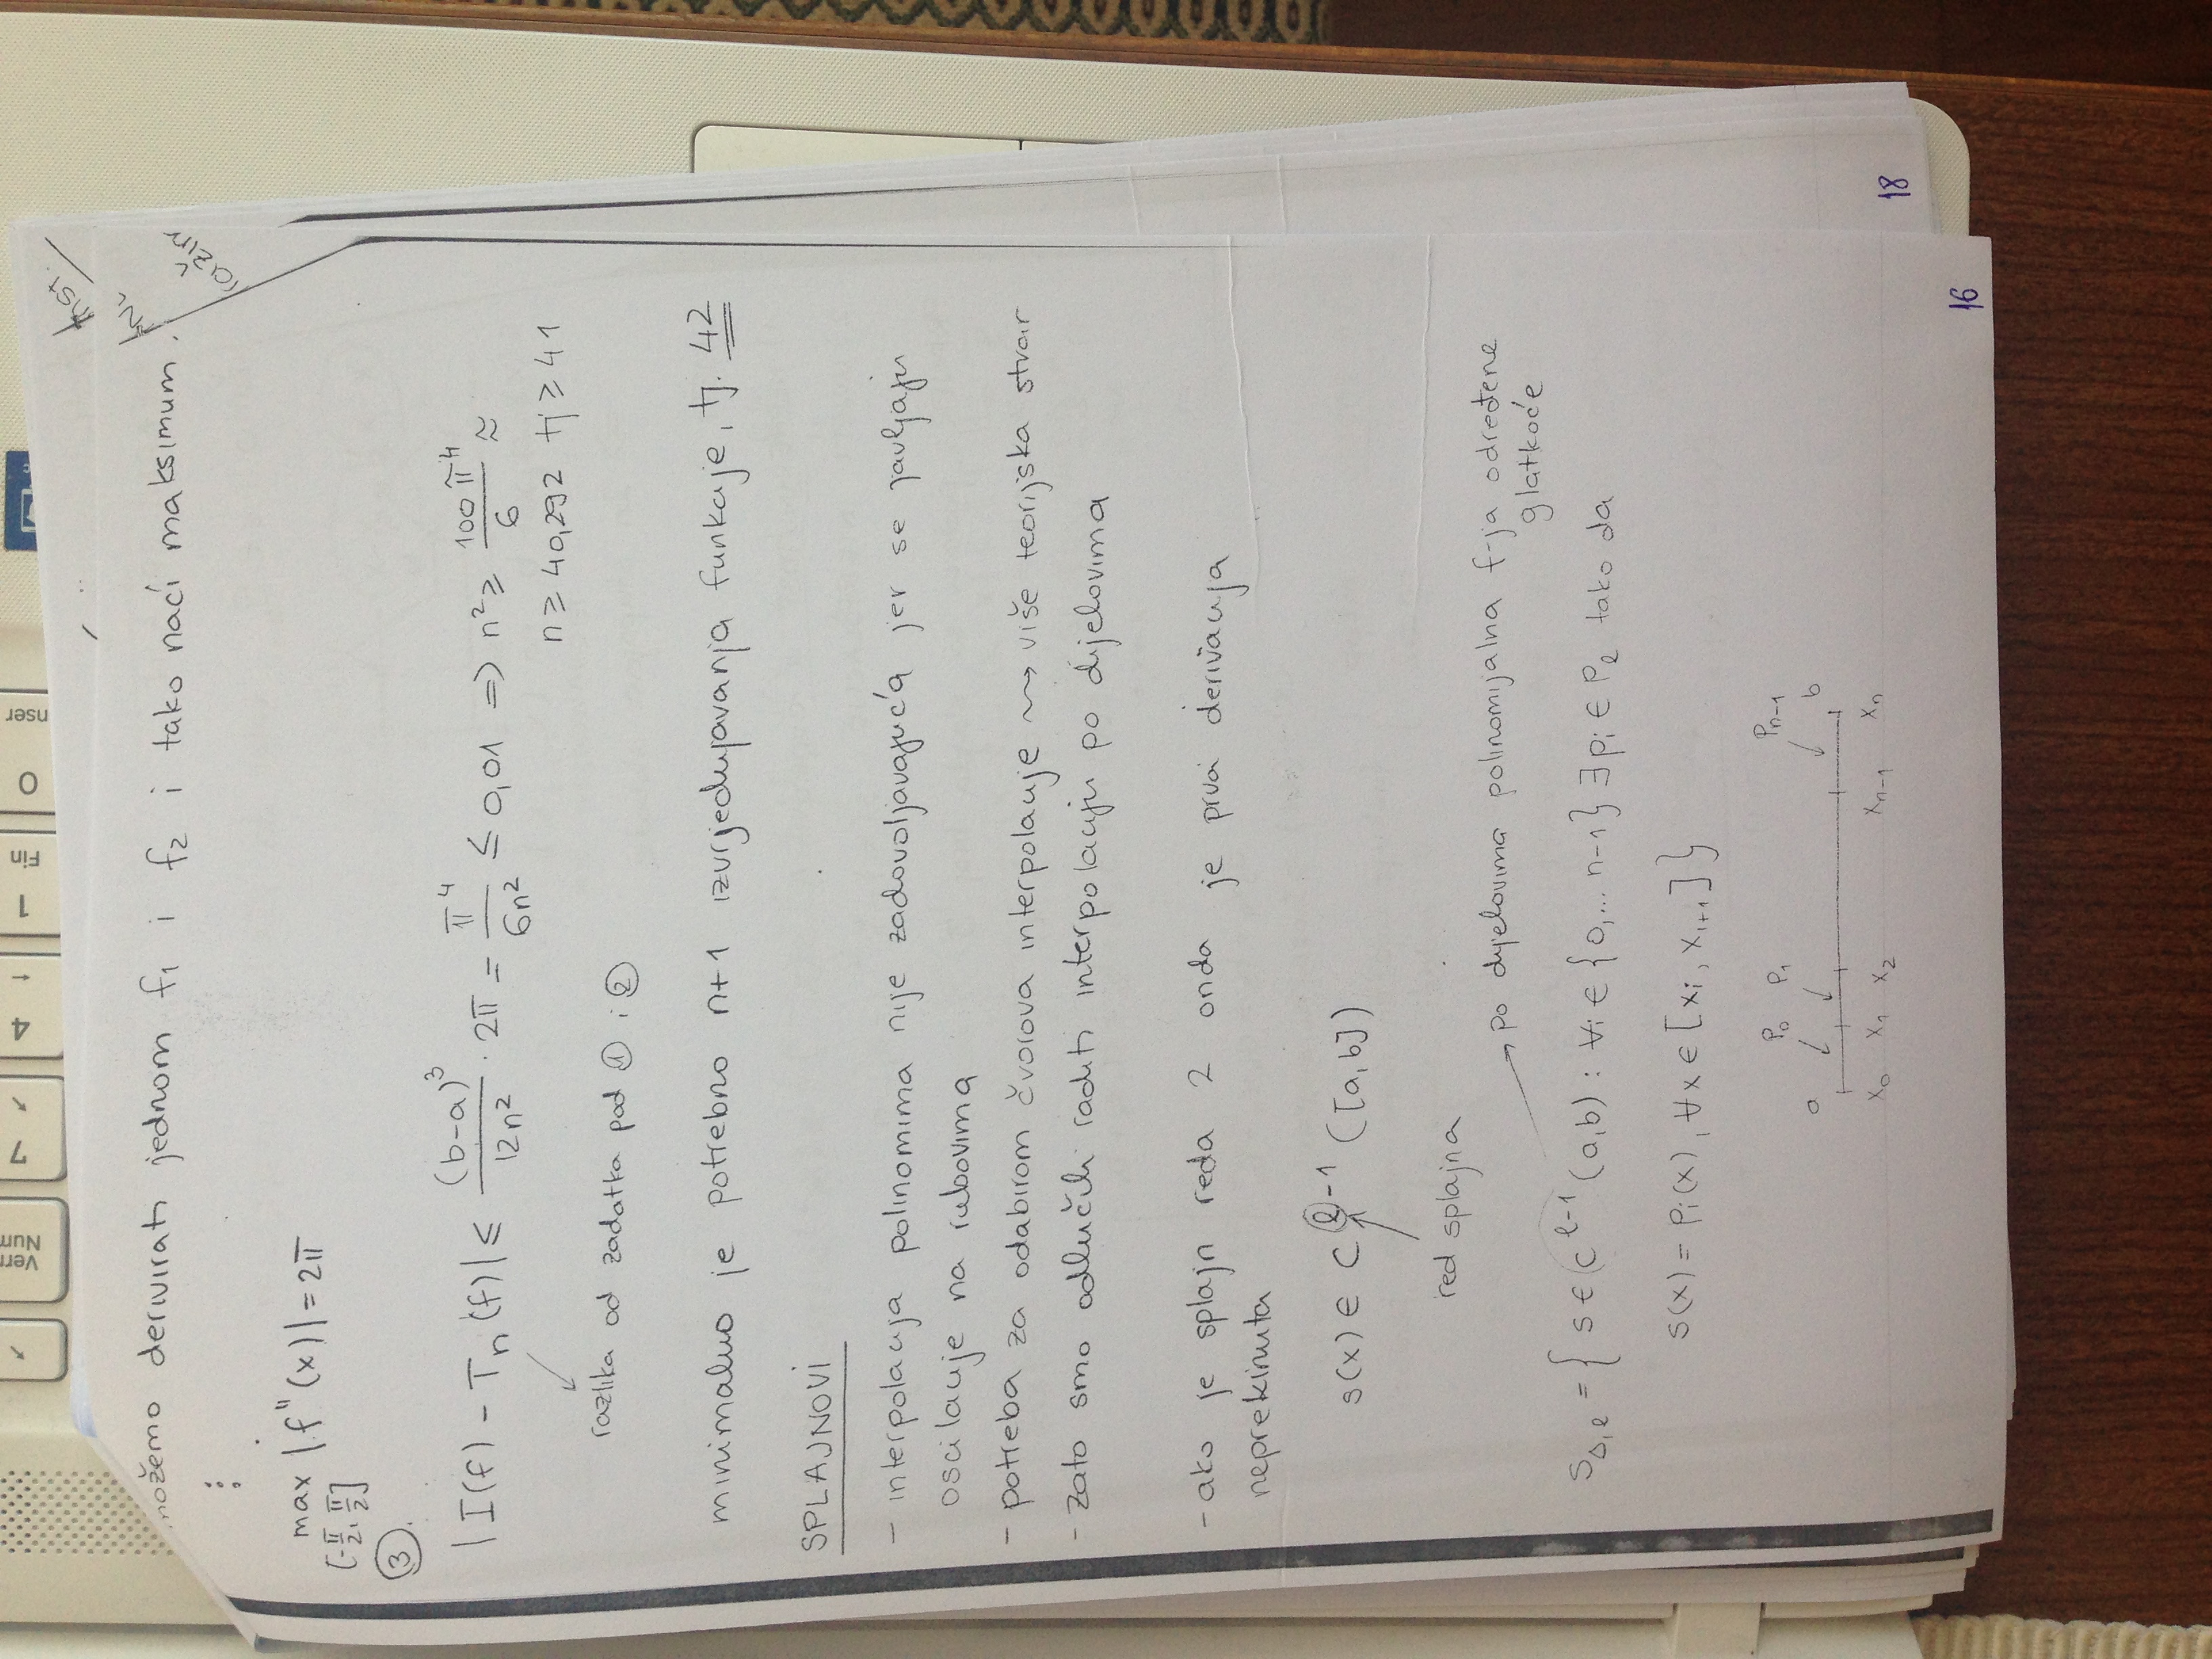 7
4
1
Fin
0
nser
možemo derivirati jednom f₁ i f₂ i tako naći maksimum.
⋮
max |f''(x)| = 2π
[-π/2, π/2]
③.
|I(f) - Tₙ(f)| ≤ (b-a)³/12n² · 2π = π⁴/6n² ≤ 0,01 ⇒ n² ≥ 100π⁴/6 ≈
n ≥ 40,292 tj ≥ 41
razlika od zadatka pod ① i ②
minimalno je potrebno n+1 izvrjednjavanja funkcije, tj. 42
SPLAJNOVI
- interpolacija polinomima nije zadovoljavajuća jer se javljaju
oscilacije na rubovima
- potreba za odabirom čvorova interpolacije ⇝ više teorijska stvar
- zato smo odlučili raditi interpolaciju po dijelovima
- ako je splajn reda 2 onda je prva derivacija
neprekinuta
s(x) ∈ C^(ℓ-1) ([a,b])
red splajna
→ po dijelovima polinomijalna f-ja određene
glatkoće
S_Δ,ℓ = { s ∈ C^(ℓ-1) (a,b) : ∀i ∈ {0,... n-1} ∃ pᵢ ∈ P_ℓ tako da
s(x) = pᵢ(x), ∀x ∈ [xᵢ, xᵢ₊₁] }
P₀ P₁ Pₙ₋₁
a b
x₀ x₁ x₂ xₙ₋₁ xₙ
18
16